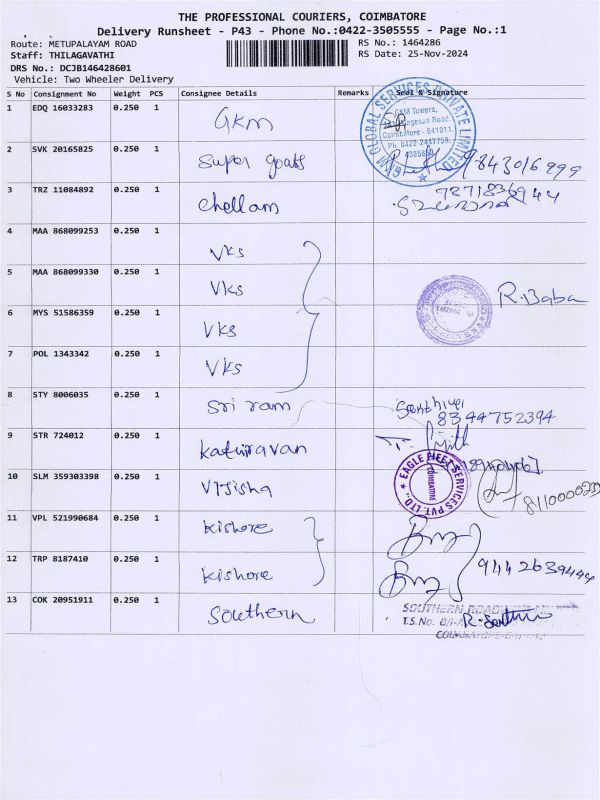 THE PROFESSIONAL COURIERS, COIMBATORE
Delivery Runsheet - P43 - Phone No.:0422-3505555 - Page No.:1
Route: METUPALAYAM ROAD
RS No.: 1464286
Staff: THILAGAVATHI
RS Date: 25-Nov-2024
DRS No.: DCJB146428601
Vehicle: Two Wheeler Delivery
S No Consignment No Weight PCS Consignee Details Remarks Seal & Signature
1 EDQ 16033283 0.250 1 GKM
GKM GLOBAL SERVICES PRIVATE LIMITED
GKM Towers,
Road,
Coimbatore - 641011.
Ph: 0422-2447759,
4385850
2 SVK 20165825 0.250 1 Super goats 9843016999
3 TRZ 11084892 0.250 1 Chellam 7271836944
4 MAA 868099253 0.250 1 VKS
5 MAA 868099330 0.250 1 VKS R. Baba
6 MYS 51586359 0.250 1 VKS
7 POL 1343342 0.250 1 VKS
8 STY 8006035 0.250 1 Sri ram Senthivel
8344752394
9 STR 724012 0.250 1 Kathiravan
10 SLM 359303398 0.250 1 Vijisha
EAGLE FLEET SERVICES PVT. LTD.,
COIMBATORE
11 VPL 521990684 0.250 1 Kishore
12 TRP 8187410 0.250 1 Kishore 9442639444
13 COK 20951911 0.250 1 Southern
SOUTHERN ROADW
T.S.No.